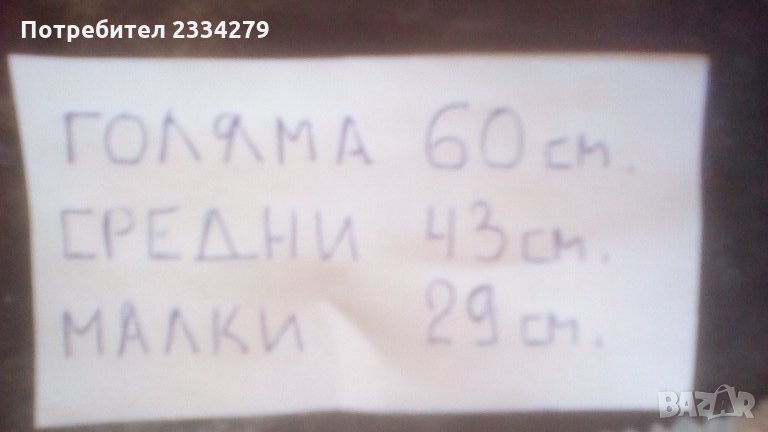 Потребител 2334279
ГОЛЯМА 60 см.
СРЕДНИ 43 см.
МАЛКИ 29 см.
BAZAR